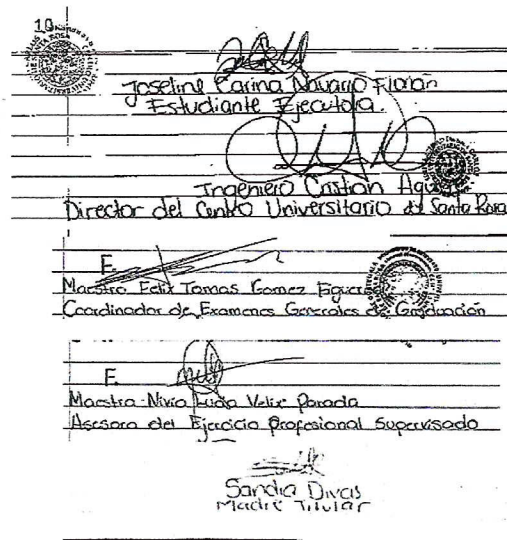 10
Joseline Carina Navarro Florián
Estudiante Ejecutora.
Ingeniero Cristian
Director del Centro Universitario de Santa Rosa
F.
Maestro Felix Tomas Gomez
Coordinador de Examenes Generales de Graduación
F.
Maestra Nivia Lucia Velix Parada
Asesora del Ejercicio Profesional Supervisado
Sandra Divas
Madre Titular